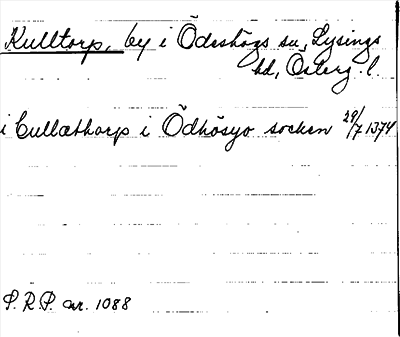 Kulltorp, by i Ödeshögs sn, Lysings
hd, Österg. l.
i Cullæthorp i Ödhösyo socken 29/7 1374
S.R.P. nr. 1088